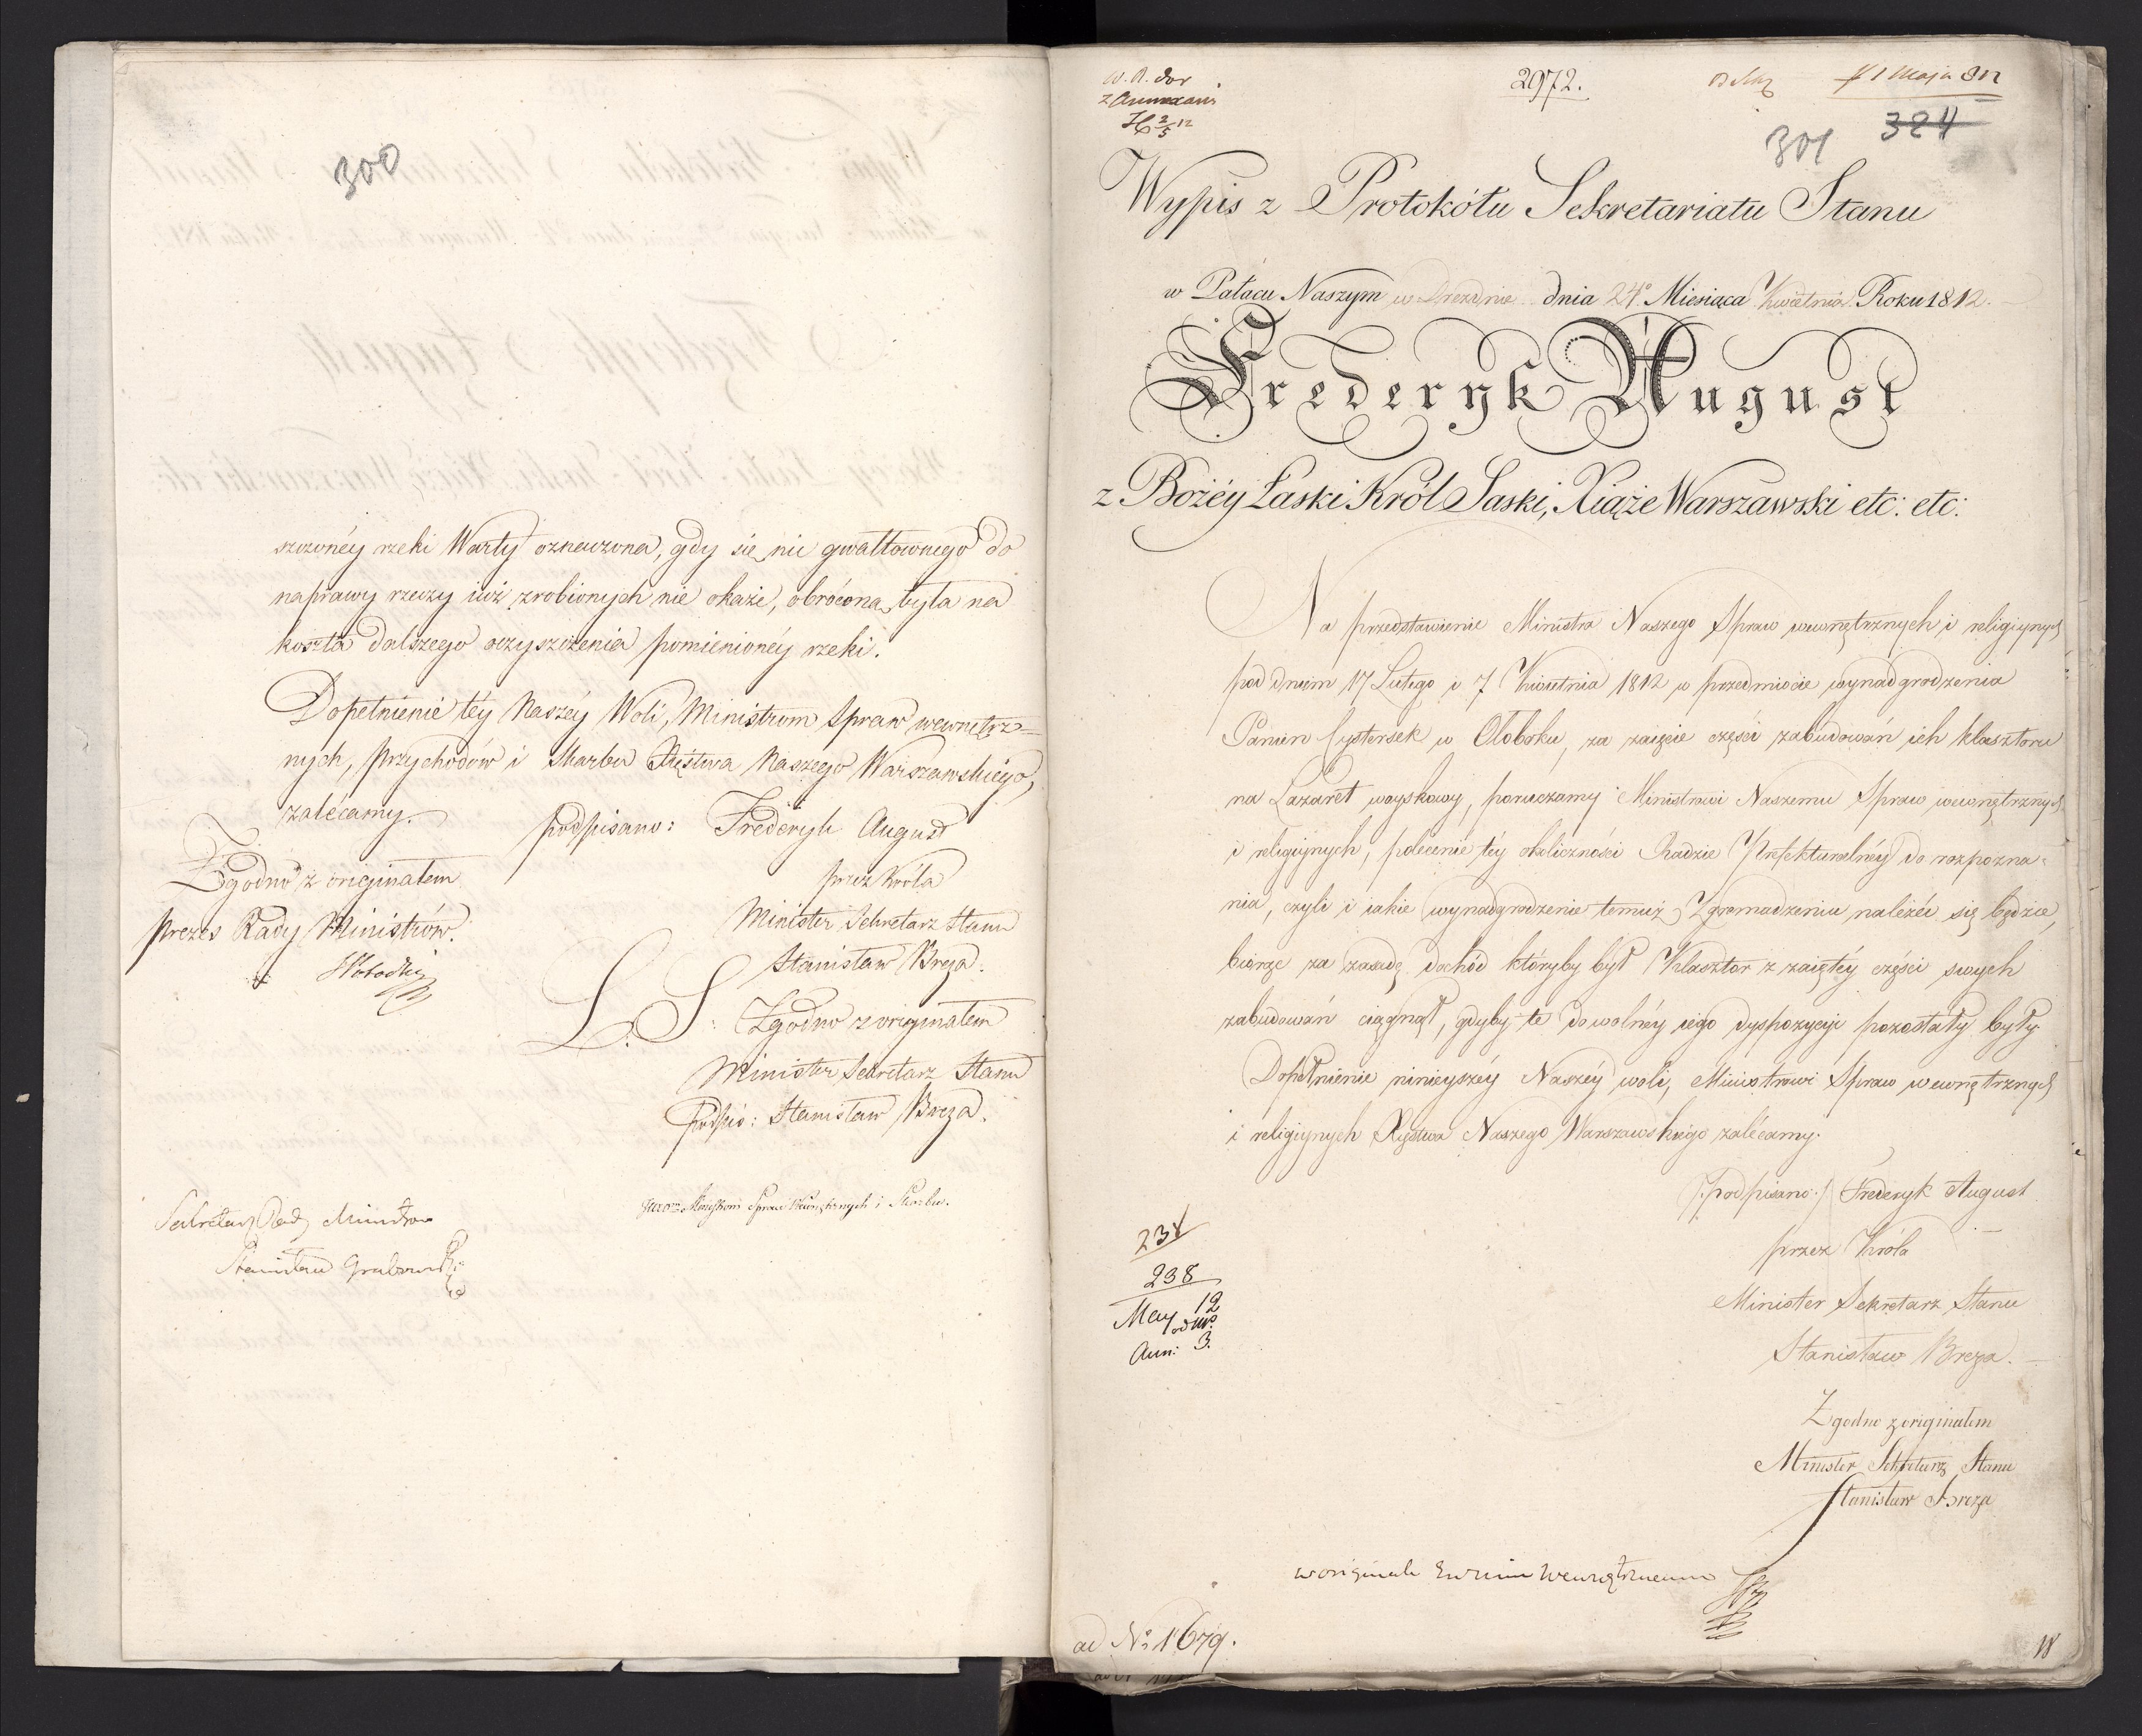 300
szczonéy rzeki Warty oznaczona, gdy się nic gwałtownego do
naprawy rzeczy iuż zrobionych nie okaże, obrócona była na
koszta dalszego oczyszczenia pomienionéy rzeki.
Dopełnienie téy Naszéy Woli, Ministrom Spraw wewnętrz=
nych, Przychodów i Skarbu Xięstwa Naszego Warszawskiégo,
zalécamy.
podpisano: Frederyk August
przez Króla
Minister Sekretarz Stanu
Stanisław Breza.
L. S: Zgodno z originałem
Minister Sekretarz Stanu
Podpis: Stanisław Breza.
Zgodno z originałem
Prezes Rady Ministrów.
Sekretarz Rady Ministrów
Stanisław Grabowski
Spraw Wewnętrznych i Skarbu.
2972.
1 Maja 812
324
301
Wypis z Protokółu Sekretariatu Stanu
w Pałacu Naszym w Dreznie dnia 24º Miesiąca Kwietnia Roku 1812.
Frederyk August
z Bożéy Łaski Król Saski, Xiąże Warszawski etc: etc:
Na przedstawienie Ministra Naszego Spraw wewnętrznych i religiynych
pod dniem 17 Lutego i 7 Kwietnia 1812 w przedmiocie wynadgrodzenia
Panien Cystersek w Ołoboku, za zaięcie części zabudowań ich klasztoru
na Lazaret woyskowy, poruczamy Ministrowi Naszemu Spraw wewnętrznych
i religiynych, polecenie téy okoliczności Radzie Prefekturalnéy do rozpozna=
nia, czyli i iakie wynadgrodzenie temuż Zgromadzeniu należéć się będzie,
biorąc za zasadę dochód któryby był Klasztor z zaiętéy części swych
zabudowań ciągnął, gdyby te do wolnéy iego dyspozycyi pozostały były.
Dopełnienie ninieyszéy Naszéy woli, Ministrowi Spraw wewnętrznych
i religiynych Xięstwa Naszego Warszawskiégo zalécamy.
/:podpisano:/ Frederyk August
przez Króla
Minister Sekretarz Stanu
Stanisław Breza.
Zgodno z originałem
Minister Sekretarz Stanu
Stanisław Breza
238
May 12
Ann: 3.
ad Nº 1679.